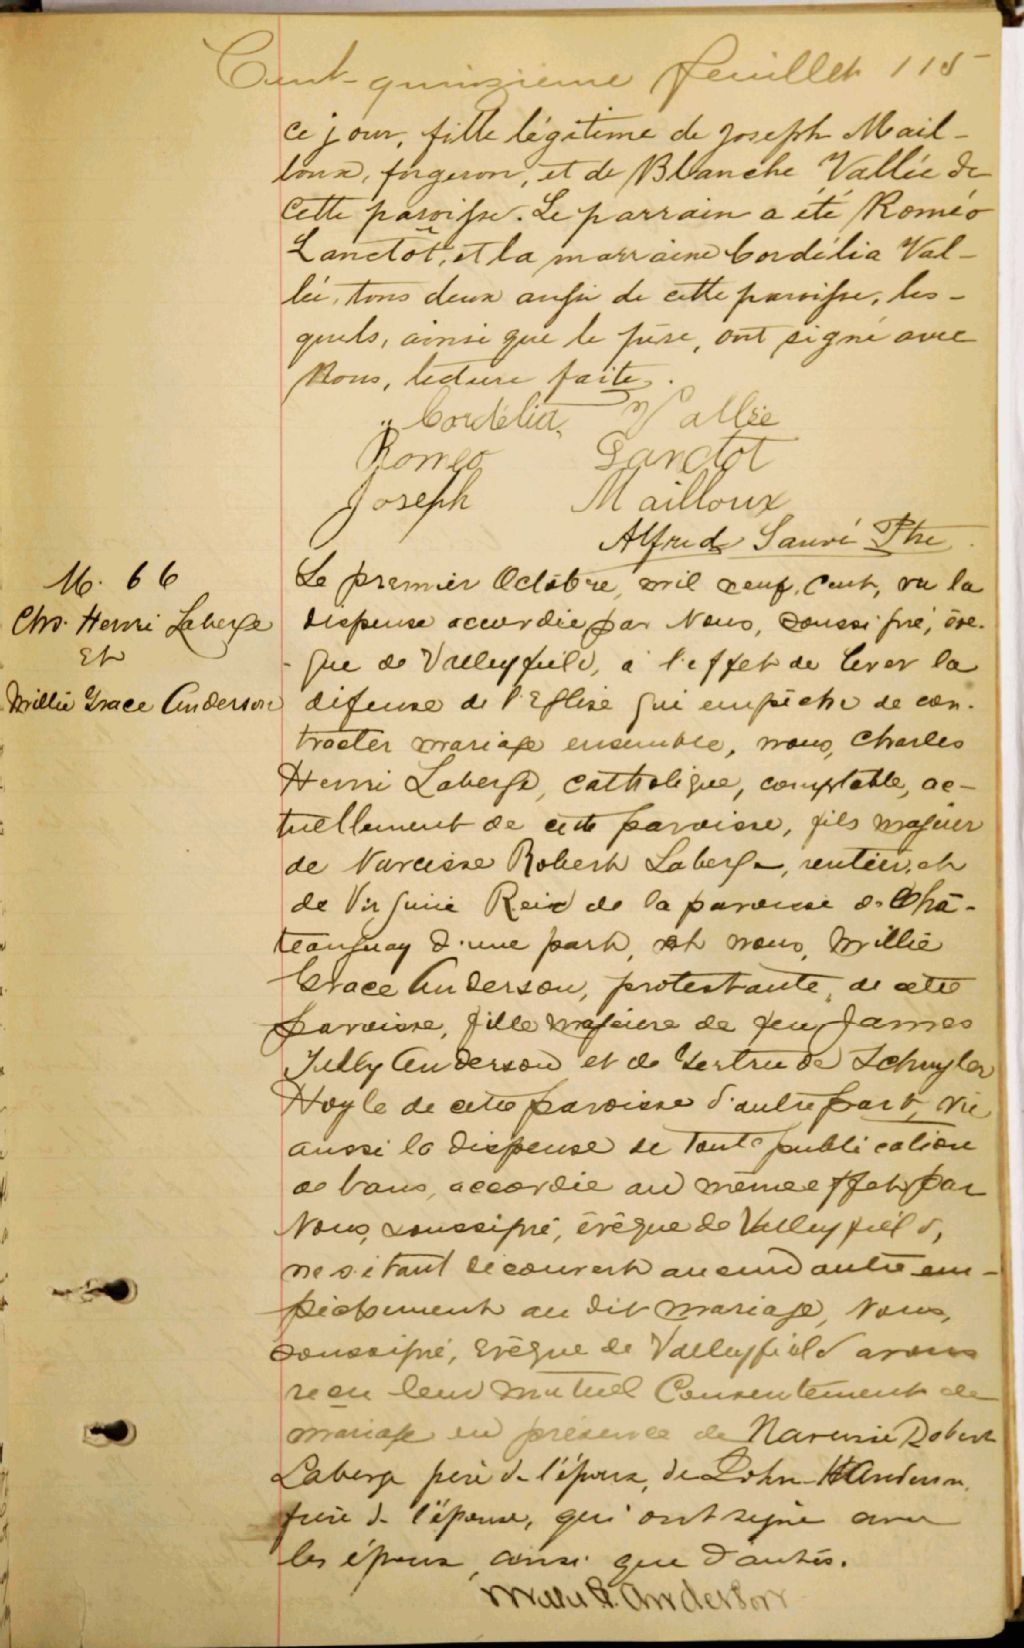 Cent-quinzième feuillet 115
ce jour, fille légitime de Joseph Mail-
loux, forgeron, et de Blanche Vallée de
cette paroisse. Le parrain a été Roméo
Lanctôt, et la marraine Cordélia Val-
lée, tous deux aussi de cette paroisse, les-
quels, ainsi que le père, ont signé avec
Nous, lecture faite.
Cordélia Vallée
Romeo Lanctot
Joseph Mailloux
Alfred Sauvé Ptre
M. 66
Chs. Henri Laberge
Et
Millie Grace Anderson
Le premier Octobre, mil neuf cent, vu la
dispense accordée par Nous, soussigné, évê-
que de Valleyfield, à l'effet de lever la
défense de l'Eglise qui empêche de con-
tracter mariage ensemble, nous, Charles
Henri Laberge, catholique, comptable, ac-
tuellement de cette paroisse, fils majeur
de Narcisse Robert Laberge, rentier, et
de Virginie Reid de la paroisse de Châ-
teauguay d'une part, et nous, Millie
Grace Anderson, protestante, de cette
paroisse, fille majeure de feu James
Anderson et de Gertrude Schuyler
Hoyle de cette paroisse d'autre part, vu
aussi la dispense de toute publication
de bans, accordée au même effet par
Nous, soussigné, évêque de Valleyfield,
ne s'étant découvert aucun autre em-
pêchement au dit mariage, Nous,
soussigné, évêque de Valleyfield avons
reçu leur mutuel Consentement de
mariage en présence de Narcisse Robert
Laberge père de l'époux, de John H Anderson,
frère de l'épouse, qui ont signé avec
les époux, ainsi que d'autres.
Millie G. Anderson